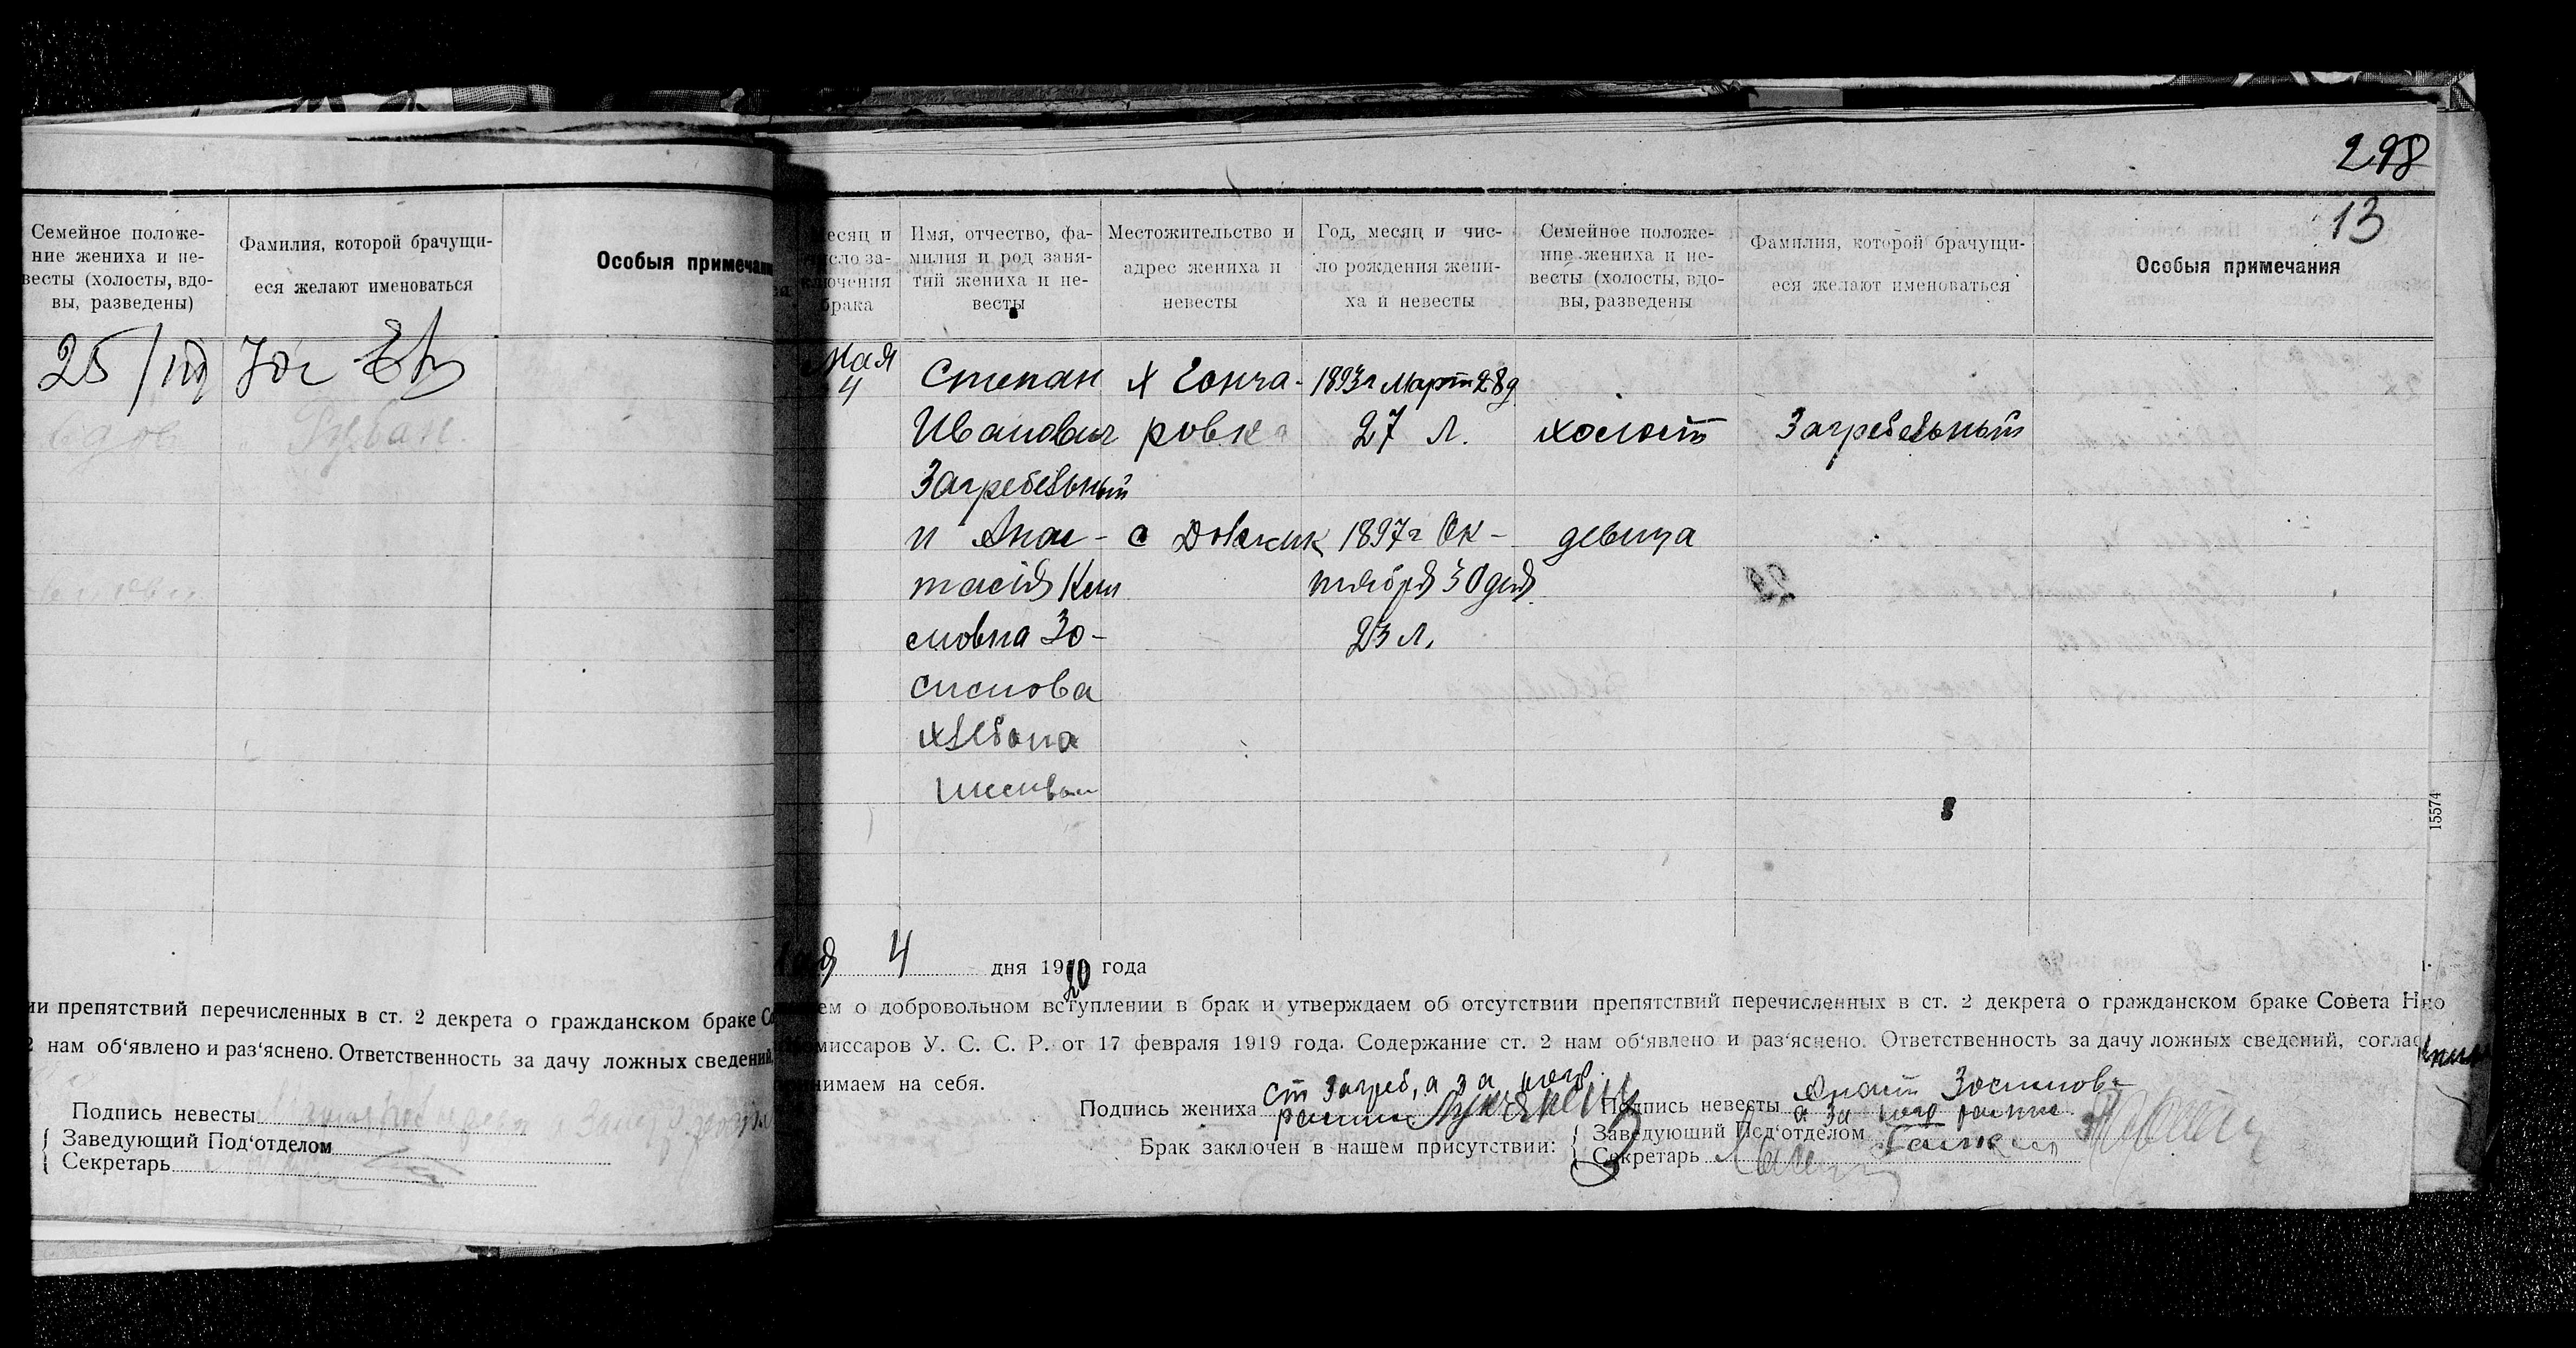 Семейное положе-
ние жениха и не-
весты (холосты, вдо-
вы, разведены)
Фамилия, которой брачущи-
еся желают именоваться
Особыя примечани
25
ии препятствий перечисленных в ст. 2 декрета о гражданском браке Со
2 нам об‘явлено и раз‘яснено. Ответственность за дачу ложных сведений,
Подпись невесты
Заведующий Под‘отделом
Секретарь
298
13
есяц и
сло за-
ключения
брака
Имя, отчество, фа-
милия и род заня-
тий жениха и не-
весты
Местожительство и
адрес жениха и
невесты
Год, месяц и чис-
ло рождения жени-
ха и невесты
Семейное положе-
ние жениха и не-
весты (холосты, вдо-
вы, разведены
Фамилия, которой брачущи-
еся желают именоваться
Особыя примечания
Мая
4
Степан х Гонча- 1893г Март 28д
Иванович ровка 27 л. холост Загребельный
Загребельный
и Анас- с Должик 1897г Ок- девица
тасія тября 30 дня
мовна Зо- 23 л.
симова
хлебопа
4 дня 1920 года
ем о добровольном вступлении в брак и утверждаем об отсутствии препятствий перечисленных в ст. 2 декрета о гражданском браке Совета Н
омиссаров У. С. С. Р. от 17 февраля 1919 года. Содержание ст. 2 нам об‘явлено и раз‘яснено. Ответственность за дачу ложных сведений, соглас
нимаем на себя.
Подпись жениха Ст Загреб, а за него
Подпись невесты Анаст Зосимова
а за него
Брак заключен в нашем присутствии:
Заведующий Под‘отделом
Секретарь
15574